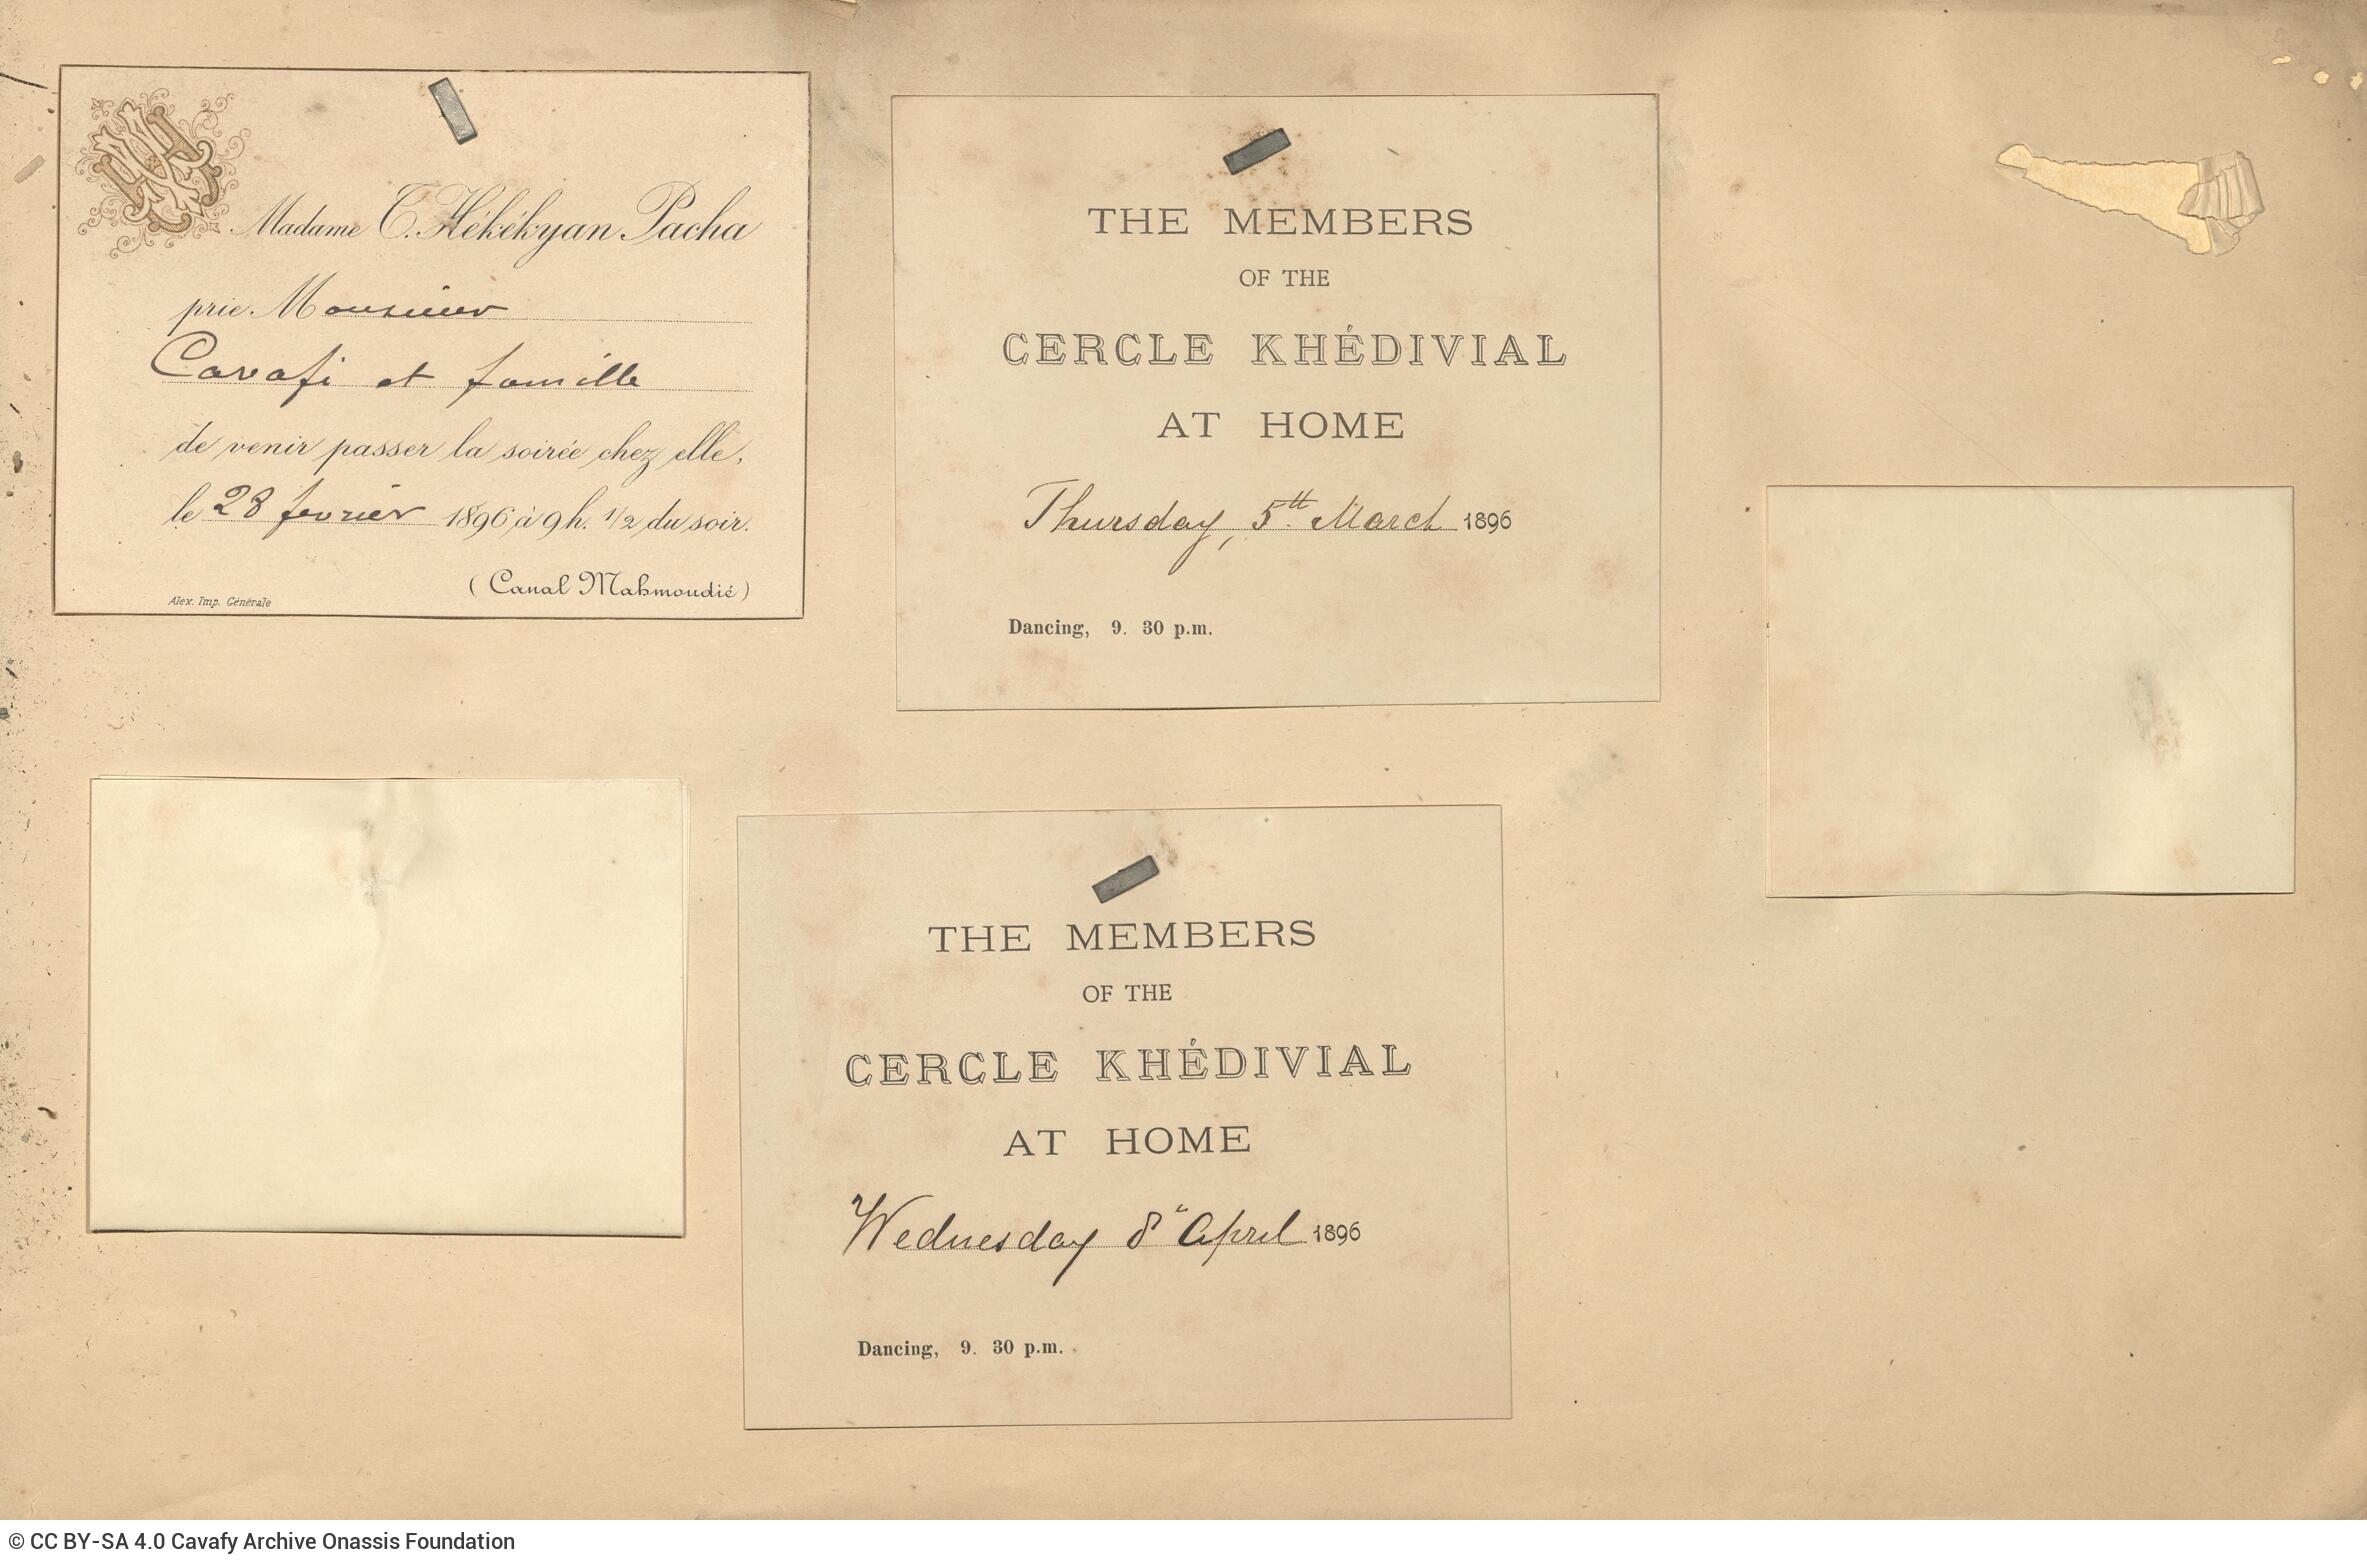 Madame T. Hékékyan Pacha
prie Monsieur
Cavafi et famille
de venir passer la soirée chez elle,
le 28 fevrier 1896 à 9 h. 1/2 du soir.
(Canal Mahmoudié)
Alex. Imp. Générale
THE MEMBERS
OF THE
CERCLE KHÉDIVIAL
AT HOME
Thursday, 5th March 1896
Dancing, 9. 30 p.m.
THE MEMBERS
OF THE
CERCLE KHÉDIVIAL
AT HOME
Wednesday 8" April 1896
Dancing, 9. 30 p.m.
© CC BY-SA 4.0 Cavafy Archive Onassis Foundation